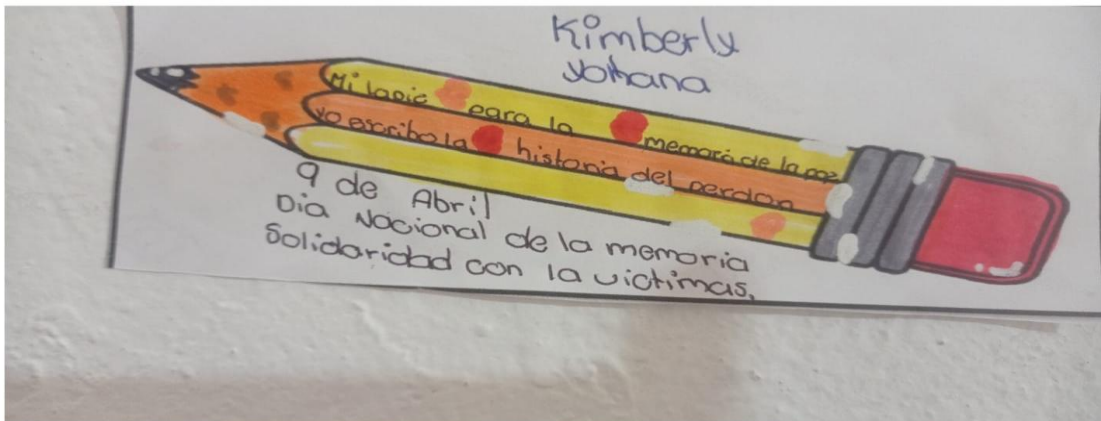 Kimberly
Yohana
Mi lapiz para la memoria de la paz
yo escribo la historia del perdon
9 de Abril
Dia Nacional de la memoria
Solidaridad con la victimas.